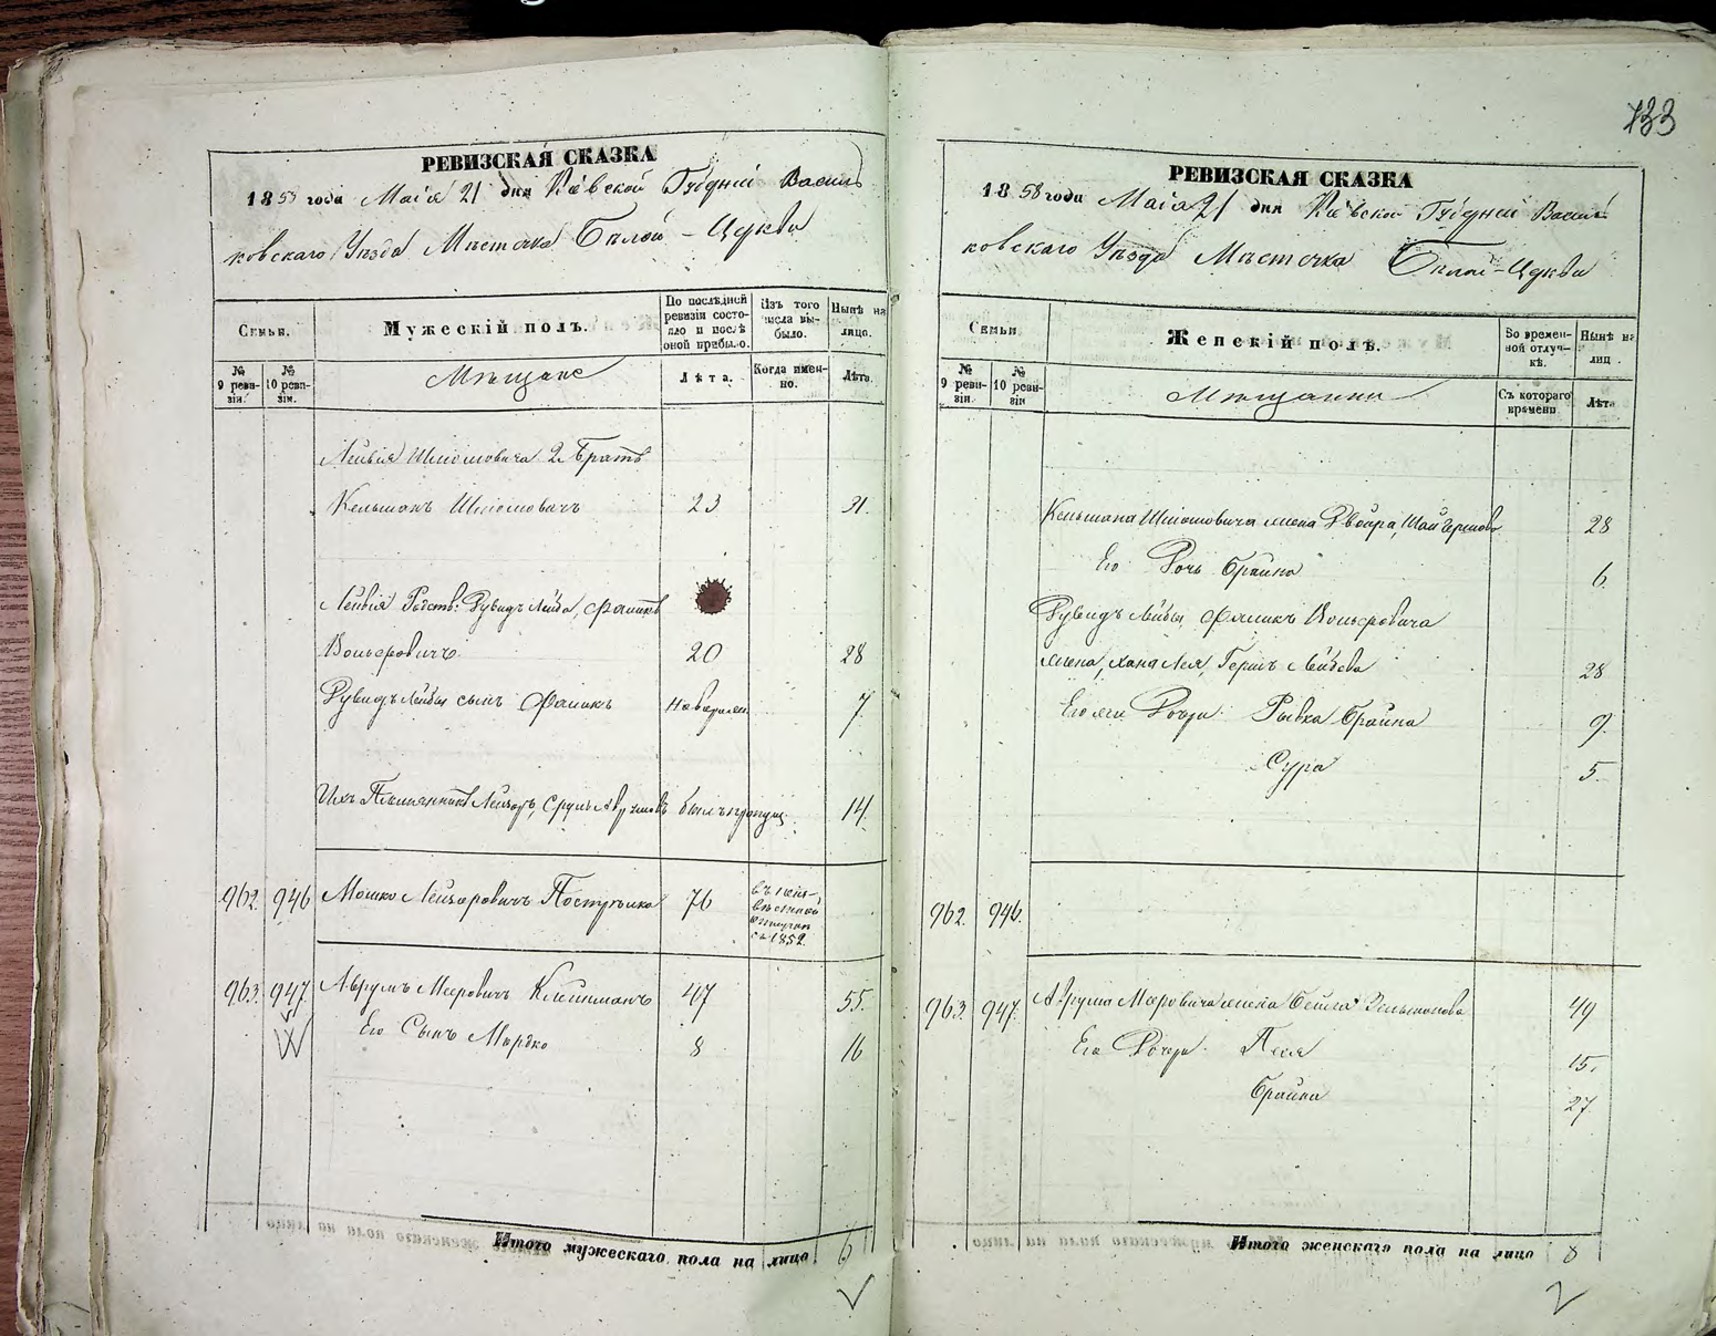 133
РЕВИЗСКАЯ СКАЗКА
1858 года Маія 21 дня Кіевской Губерніи Василь
ковскаго Уѣзда Мѣстечка Бѣлой-Церкви
Семьи.
Мужескій полъ.
По послѣдней ревизіи состояло и послѣ оной прибыло.
Изъ того числа выбыло.
Нынѣ на лицо.
№ 9 ревизіи.
№ 10 ревизіи.
Мѣщане
Лѣта.
Когда именно.
Лѣта.
Лейбы Шліомовича 2й братъ
Кельманъ Шліомовичъ 23 31.
Лейбы Рувидъ Лейба, Фроимъ
Вольфовичъ 20 28
Рувидъ Лейбы сынъ 7
Ихъ Племянникъ Лейзоръ, Сруль былъ пропущ. 14
962. 946 Мошко Лейзоровичъ 76 въ неизвѣстной отлучкѣ съ 1852.
963. 947. Аврумъ Мееровичъ Клейнманъ 47 55.
Его Сынъ Мордко 8 16
Итого мужескаго пола на лицо 6
РЕВИЗСКАЯ СКАЗКА
1858 года Маія 21 дня Кіевской Губерніи Василь
ковскаго Уѣзда Мѣстечка Бѣлой-Церкви
Семьи
Женскій полъ.
Во временной отлучкѣ.
Нынѣ на лиц.
№ 9 ревизіи.
№ 10 ревизіи
Мѣщанки
Съ котораго времени
Лѣта
Кельмана Шліомовича жена Двойра, 28
Его Дочь Брайна 6.
Рувидъ Лейбы Вольфовича
жена, Хана Лея, Герша Лейбова 28
Его же Дочери Рывка Брайна 9.
Сура 5.
962. 946.
963. 947. Аврума Мееровича жена Бейла 49
Его Дочери Песя 15.
Брайна 27.
Итого женскаго пола на лицо 8